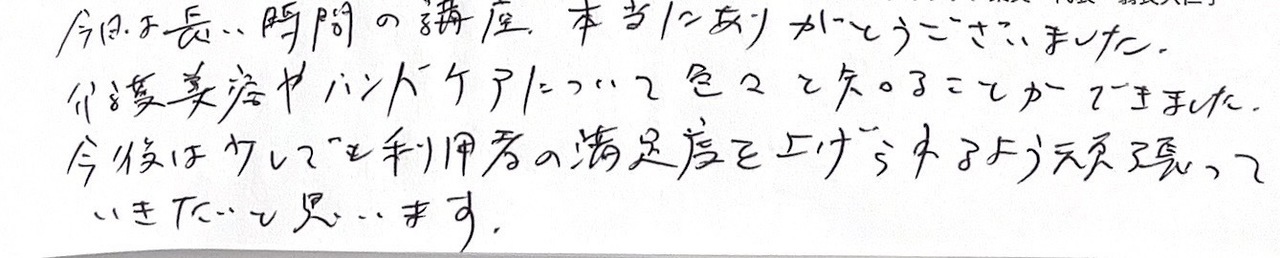 今回は長い時間の講座、本当にありがとうございました。
介護美容やハンドケアについて色々と知ることができました。
今後は少しでも利用者の満足度を上げられるよう頑張って
いきたいと思います。